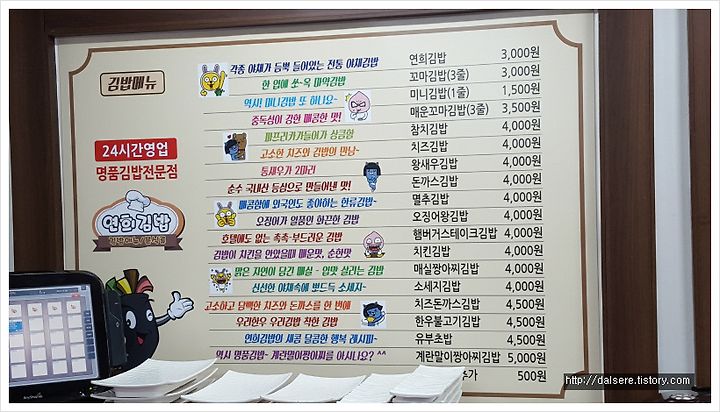 김밥메뉴
24시간영업
명품김밥전문점
연희김밥
각종 야채가 듬뿍 들어있는 전통 야채김밥 연희김밥 3,000원
한 입에 쏘~옥 마약김밥 꼬마김밥(3줄) 3,000원
역시! 미니김밥 또 하나요~ 미니김밥(1줄) 1,500원
중독성이 강한 매콤한 맛! 매운꼬마김밥(3줄) 3,500원
파프리카가들어가 상큼함 참치김밥 4,000원
고소한 치즈와 김밥의 만남~ 치즈김밥 4,000원
통새우가 2마리 왕새우김밥 4,000원
순수 국내산 등심으로 만들어낸 맛! 돈까스김밥 4,000원
매콤함에 외국인도 좋아하는 한류김밥~ 멸추김밥 4,000원
오징어가 일품인 화끈한 김밥 오징어왕김밥 4,000원
호텔에도 없는 촉촉·부드러운 김밥 햄버거스테이크김밥 4,000원
김밥이 치킨을 안았을때 매운맛, 순한맛 치킨김밥 4,000원
맑은 자연이 담긴 매실 - 입맛 살리는 김밥 매실짱아찌김밥 4,000원
신선한 야채속에 뽀드득 소세지~ 소세지김밥 4,000원
고소하고 담백한 치즈와 돈까스를 한 번에 치즈돈까스김밥 4,500원
우리한우 우리김밥 착한 김밥 한우불고기김밥 4,500원
연희김밥의 새콤 달콤한 행복 레시피~ 유부초밥 4,500원
역시 명품김밥~ 계란말이짱아찌를 아시나요? ^^ 계란말이짱아찌김밥 5,000원
추가 500원
http://dalsere.tistory.com